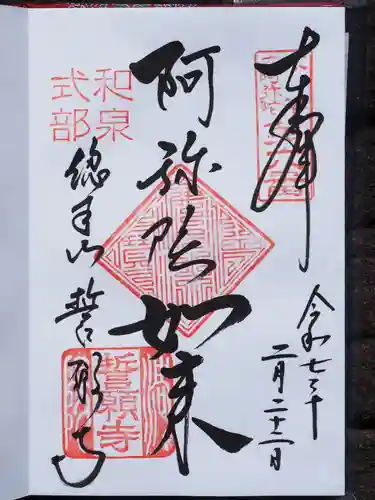 奉拝
令和七年
二月二十二日
阿弥陀如来
和泉
式部
総本山
誓願寺
誓願寺